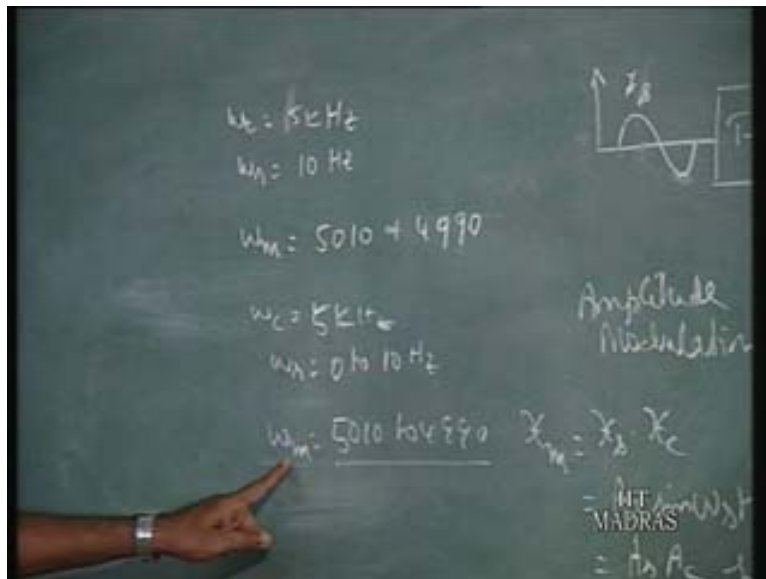 ωc = 5kHz
ωs = 10 Hz
ωm = 5010 + 4990
ωc = 5kHz
ωs = 0 to 10 Hz
ωm = 5010 to 4990
xs
Amplitude
Modulation
xm = xs · xc
= As sin ωst
= As Ac
IIT
MADRAS